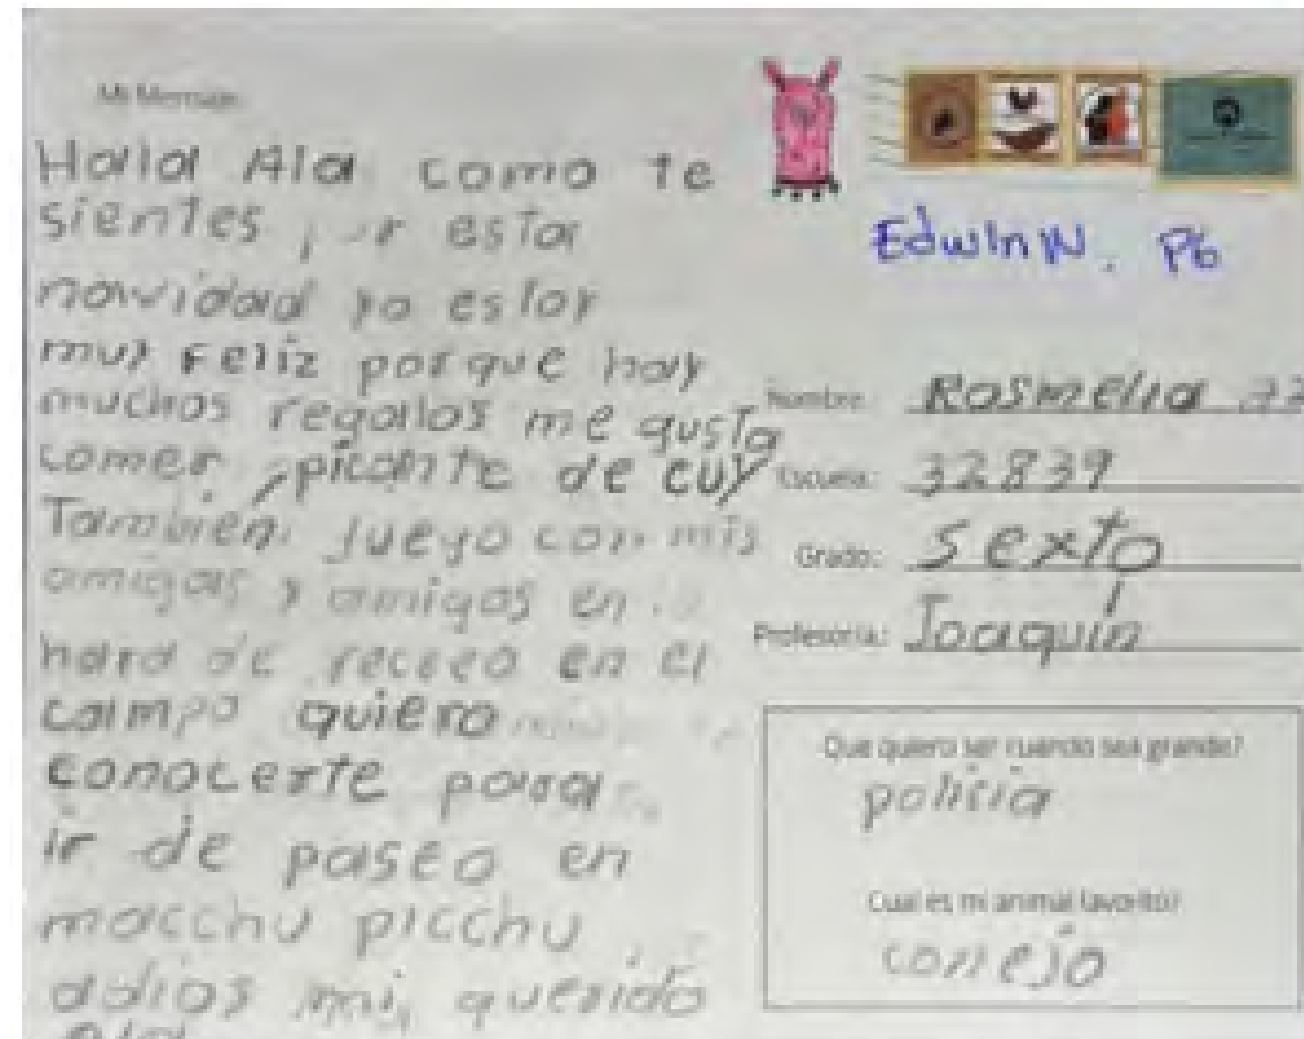 Mi Mensaje:
Hola Ala como te
sientes, esta
navidad yo estoy
muy Feliz porque hay
muchos regalos me gusta
comer picante de cuy
También juego con mis
amigas y amigos en
hora de receeo en el
campo quiero
conocerte para
ir de paseo en
macchu picchu
adios mi querido
Edwin N. P6
Nombre: Rosmelia
Escuela: 32839
Grado: sexto
Profesor/a: Joaquin
Que quiero ser cuando sea grande?
policia
Cual es mi animal favorito?
conejo